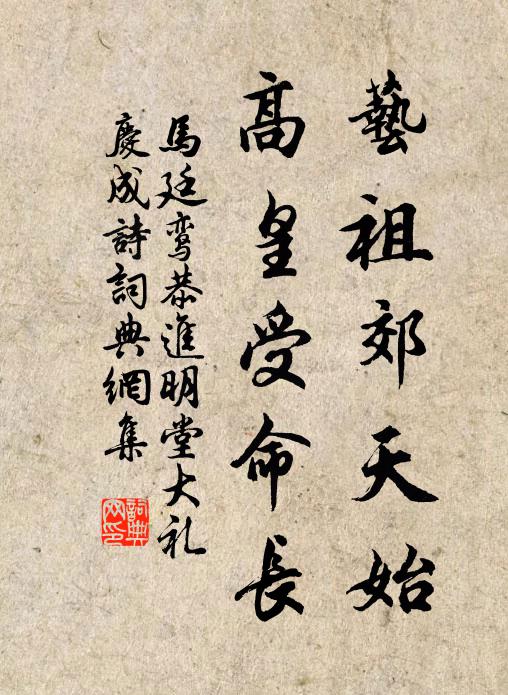 藝祖郊天始
高皇受命長
馬廷鸞恭進明堂大礼
慶成詩詞典網集
詞典
网印